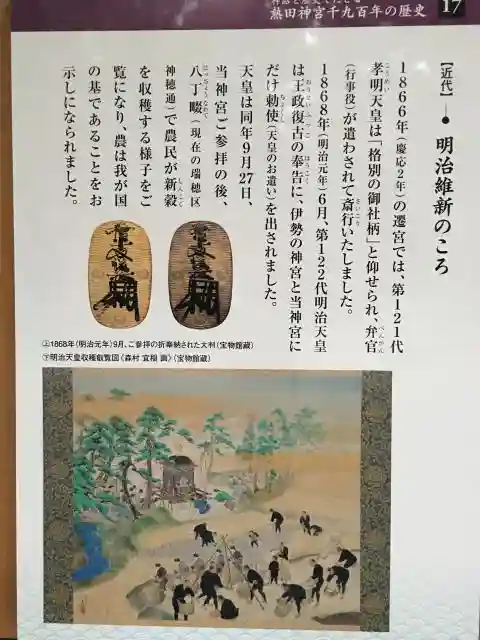 熱田神宮千九百年の歴史
17
【近代】
明治維新のころ
1866年（慶応2年）の遷宮では、第121代
孝明天皇は「格別の御社柄」と仰せられ、弁官
こうめい
べんかん
（行事役）が遣わされて斎行いたしました。
さいこう
1868年（明治元年）6月、第122代明治天皇
は王政復古の奉告に、伊勢の神宮と当神宮に
おうせいふっこ
ほうこく
だけ勅使（天皇のお遣い）を出されました。
ちょくし
天皇は同年9月27日、
当神宮ご参拝の後、
八丁畷（現在の瑞穂区
はっちょうなわて
神穂通）で農民が新穀
しんこく
を収穫する様子をご
覧になり、農は我が国
の基であることをお
示しになられました。
㊤1868年（明治元年）9月、ご参拝の折奉納された大判（宝物館蔵）
㊦明治天皇収穫叡覧図《森村 宜稲 画》（宝物館蔵）